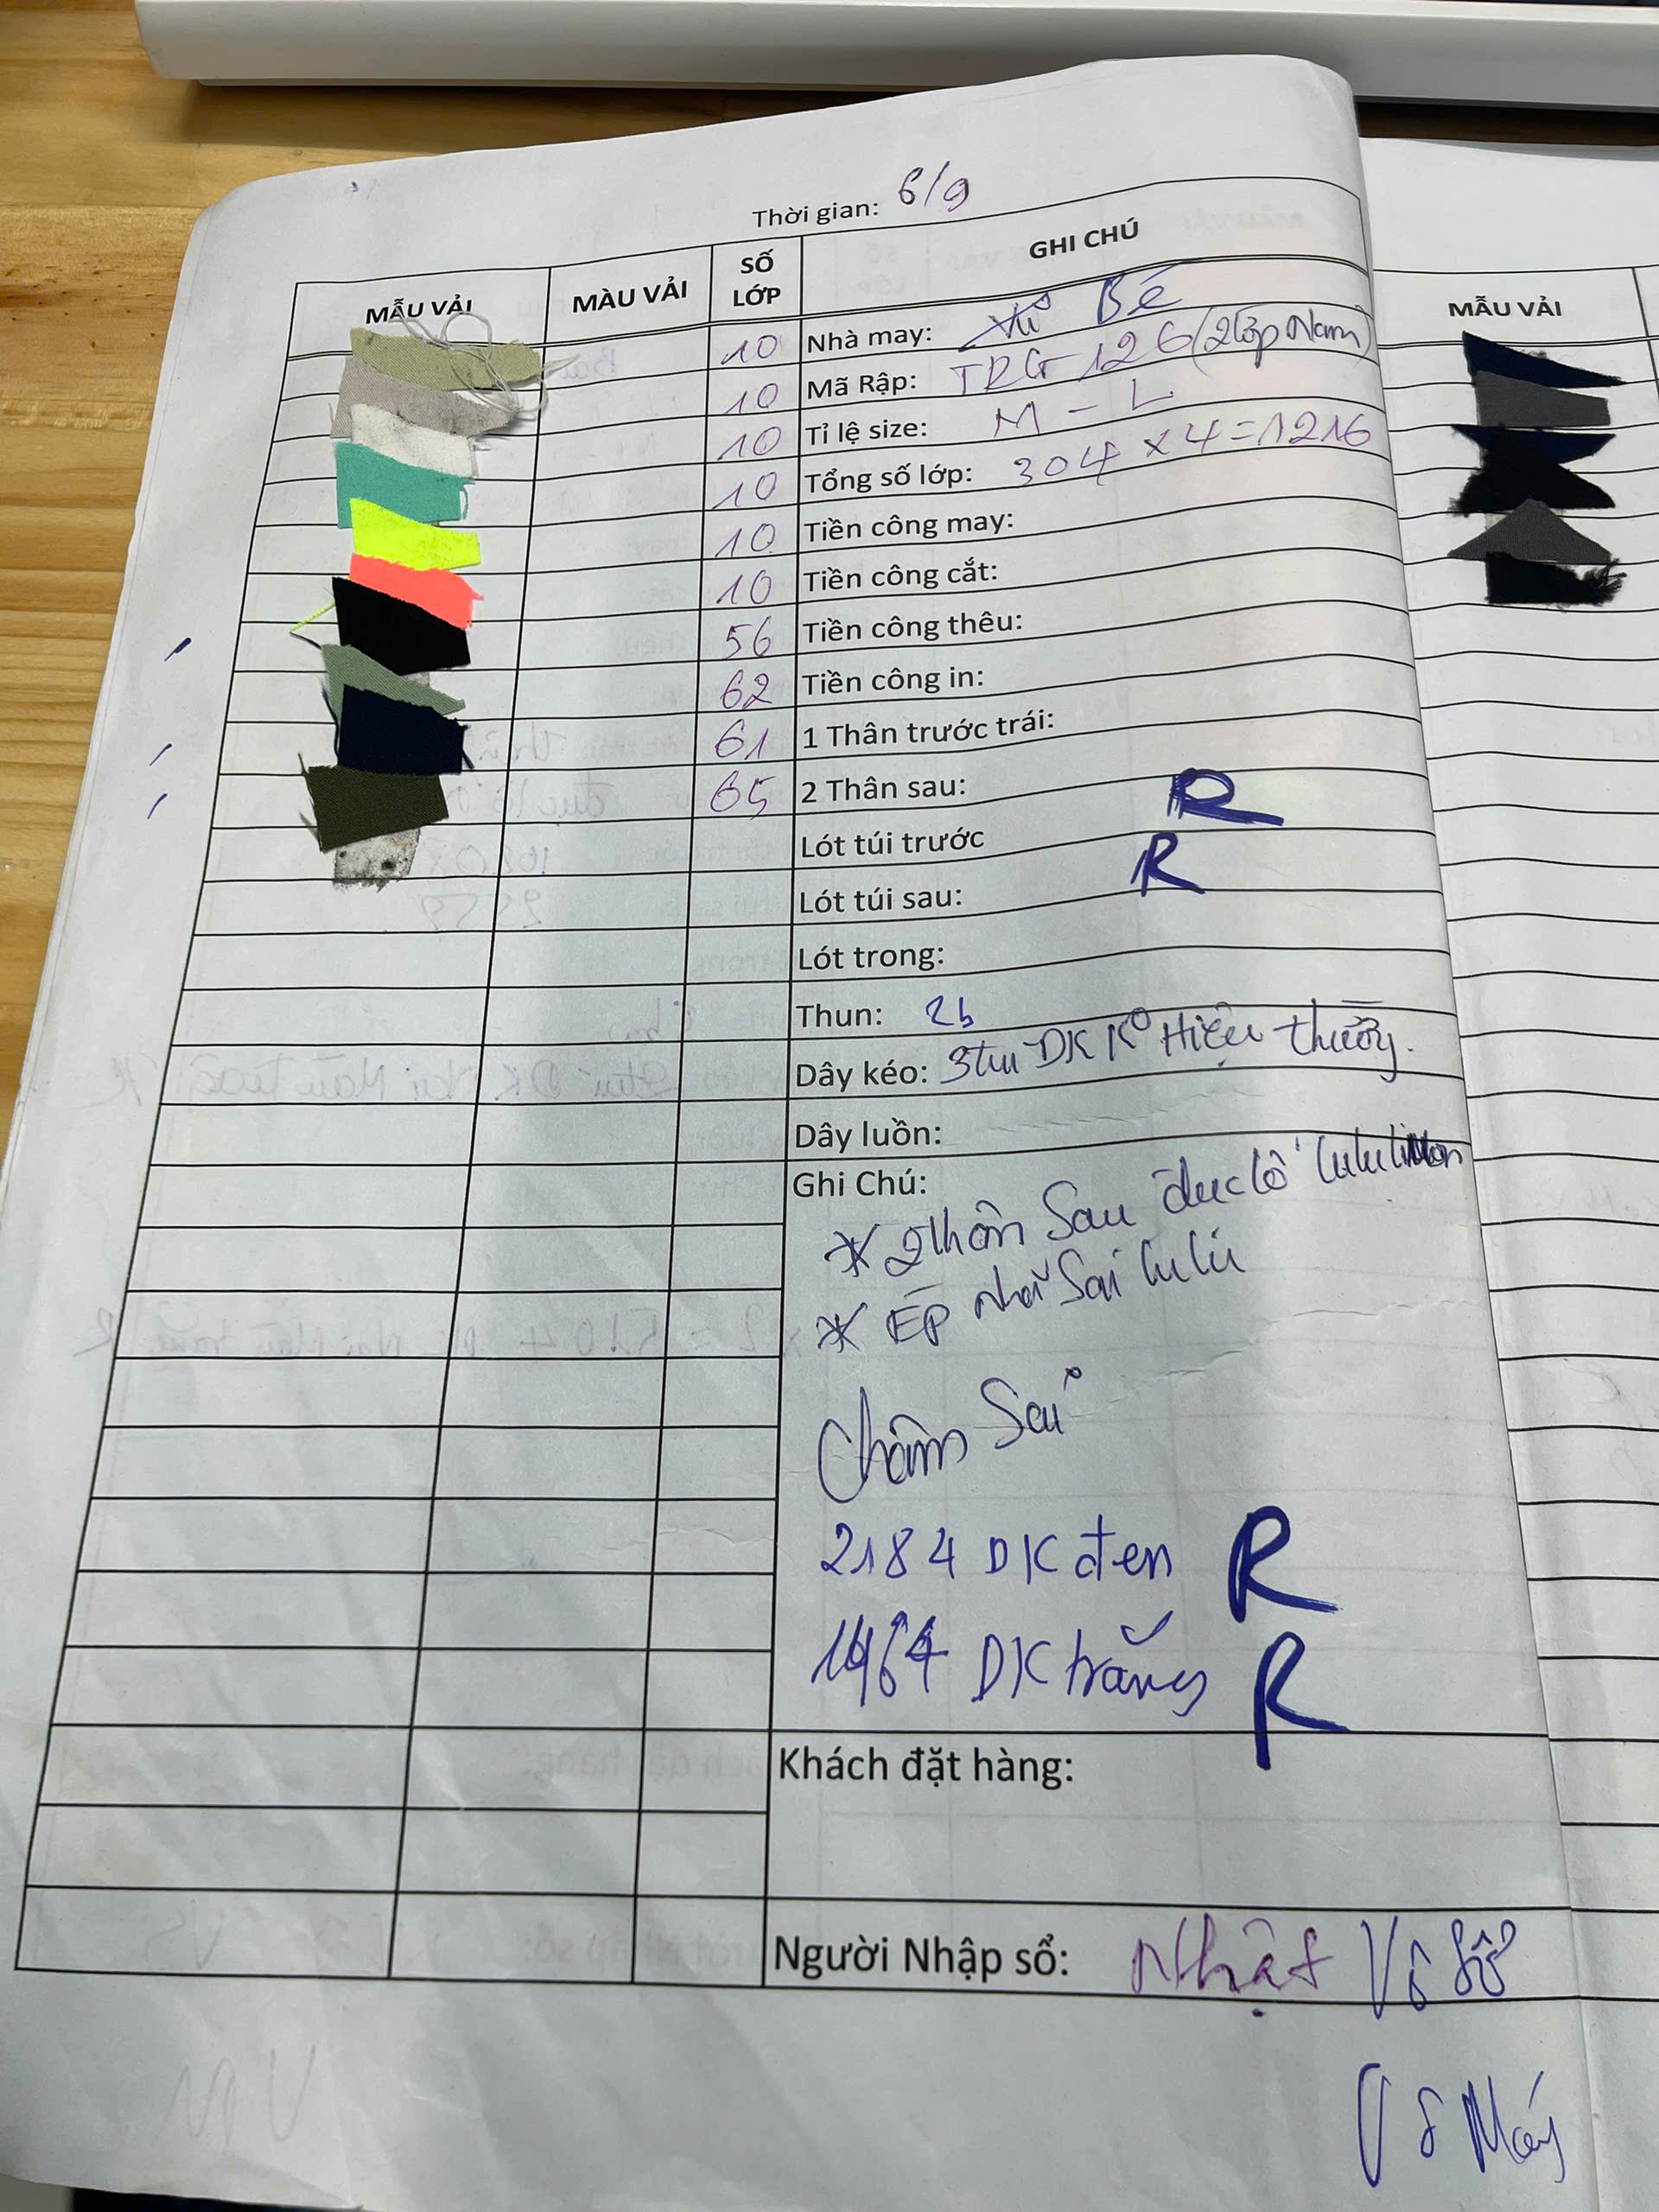 Thời gian: 6/9
MẪU VẢI
MÀU VẢI
SỐ LỚP
GHI CHÚ
10
Nhà may: Bé
10
Mã Rập: TRG-126 (2 lớp Nam)
10
Tỉ lệ size: M - L
10
Tổng số lớp: 304 x 4 = 1216
10
Tiền công may:
10
Tiền công cắt:
56
Tiền công thêu:
62
Tiền công in:
61
1 Thân trước trái:
65
2 Thân sau: R
Lót túi trước R
Lót túi sau:
Lót trong:
Thun: 2b
Dây kéo: 3túi DK K° Hiệu thường.
Dây luồn:
Ghi Chú:
* 2 thân Sau đục lỗ lululimon
* ÉP nhã Sai lulu
Châm Sai
2184 DK đen R
DK trắng R
Khách đặt hàng:
Người Nhập sổ: Nhật Vô Sổ
V S Máy
MẪU VẢI